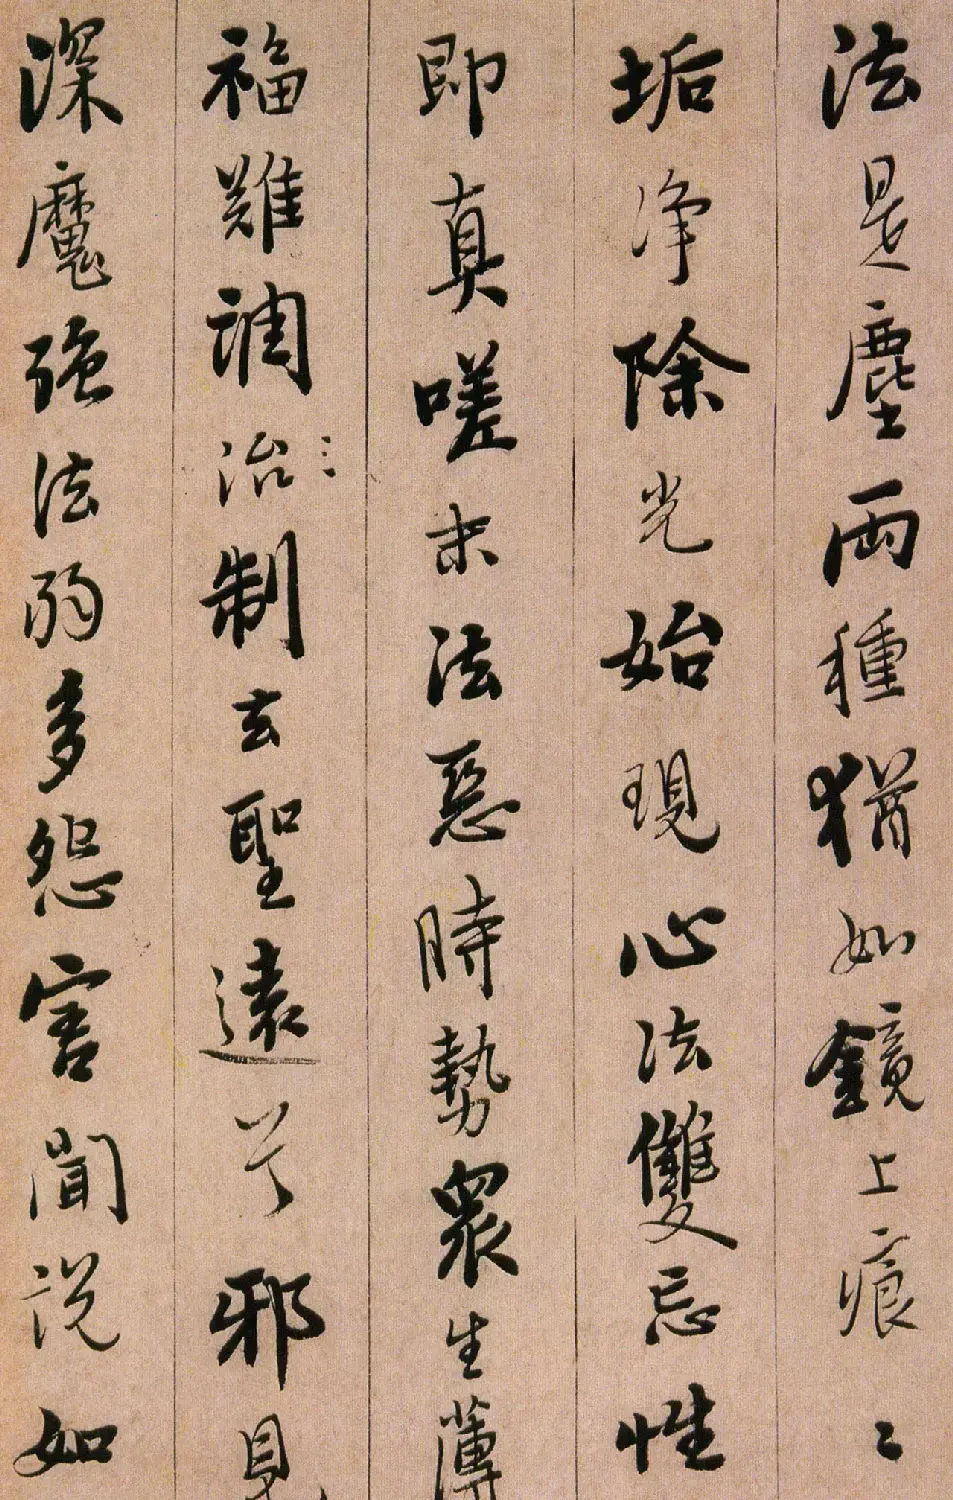 法是塵兩種猶如鏡上痕〻
垢淨除光始現心法雙忘性
即真嗟末法惡時勢眾生薄
福難調治制去聖遠兮邪見
深魔強法弱多怨害聞説如